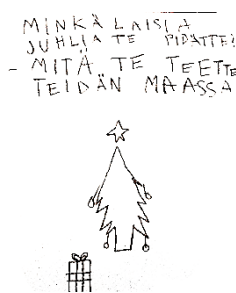 MINKÄLAISIA
JUHLIA TE PIDÄTTE?
- MITÄ TE TEETTE
TEIDÄN MAASSA